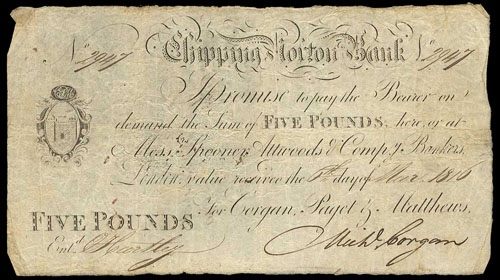 No 2947 Chipping Norton Bank No 2947
I Promise to pay the Bearer on
demand the Sum of FIVE POUNDS, here, or at
Messrs Spooner Attwoods & Compy Bankers,
London: value received the day of 1816
For Corgan, Paget & Matthews.
FIVE POUNDS
Entd
Michl Corgan